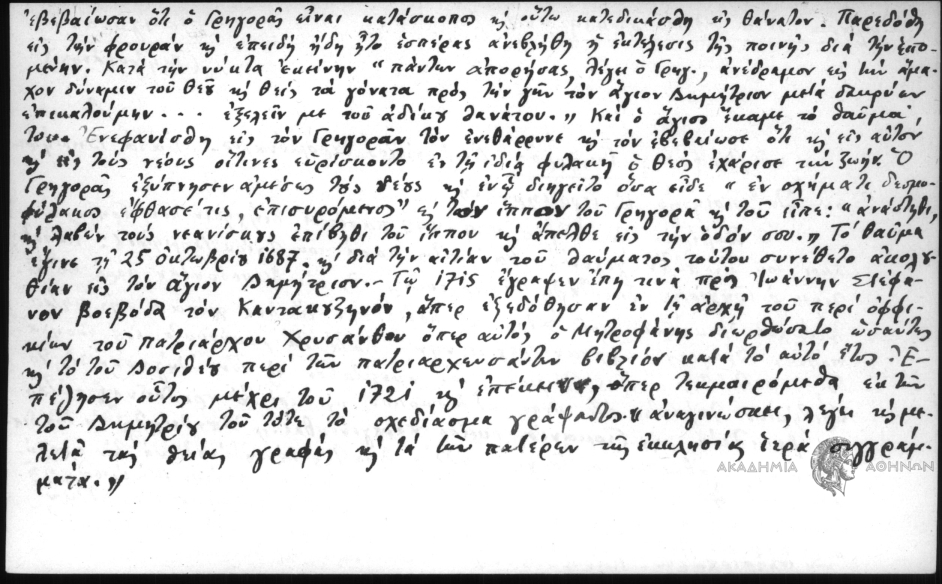 ἐβεβαίωσαν ὅτι ὁ Γρηγορᾶς εἶναι κατάσκοπος κ̀ οὕτω κατεδικάσθη εἰς θάνατον. Παρεδόθη
εἰς τὴν φρουρὰν κ̀ ἐπειδὴ ἤδη ἦτο ἑσπέρας ἀνεβλήθη ἡ ἐκτέλεσις τῆς ποινῆς διὰ τὴν ἑπο-
μένην. Κατὰ τὴν νύκτα ἐκείνην "πάντων ἀπορήσας, λέγει ὁ Γρηγ., ἀνέδραμον εἰς τὴν ἄμα-
χον δύναμιν τοῦ Θεοῦ κ̀ θεὶς τὰ γόνατα πρὸς τὴν γῆν τὸν ἅγιον Δημήτριον μετὰ δακρύων
ἐπικαλούμην... ἐξελεῖν με τοῦ ἀδίκου θανάτου." Καὶ ὁ ἅγιος ἔκαμε τὸ θαῦμά
του. Ἐνεφανίσθη εἰς τὸν Γρηγορᾶν τὸν ἐνεθάρρυνε κ̀ τὸν ἐβεβαίωσε ὅτι κ̀ εἰς αὐτὸν
κ̀ εἰς τοὺς νέους οἵτινες εὑρίσκοντο ἐν τῇ ἰδίᾳ φυλακῇ ὁ Θεὸς ἐχάρισε τὴν ζωήν. Ὁ
Γρηγορᾶς ἐξύπνησεν ἀμέσως τοὺς νέους κ̀ ἐνῷ διηγεῖτο ὅσα εἶδε "ἐν σχήματι δεσμο-
φύλακος ἔφθασέ τις, ἐπισυρόμενος" τὸν ἵππον τοῦ Γρηγορᾶ κ̀ τοῦ εἶπε: "ἀνάστηθι,
κ̀ λαβὼν τοὺς νεανίσκους ἐπίβηθι τοῦ ἵππου κ̀ ἄπελθε εἰς τὴν ὁδόν σου." Τὸ θαῦμα
ἔγινε τῇ 25 Ὀκτωβρίου 1687. κ̀ διὰ τὴν αἰτίαν τοῦ θαύματος τούτου συνέθετο ἀκολου-
θίαν εἰς τὸν ἅγιον Δημήτριον.- Τῷ 1715 ἔγραψεν ἔπη τινὰ πρὸς Ἰωάννην Στέφα-
νον βοεβόδα τὸν Καντακουζηνόν, ἅπερ ἐξεδόθησαν ἐν τῇ ἀρχῇ τοῦ περὶ ὀφφι-
κίων τοῦ πατριάρχου Χρυσάνθου ὅπερ αὐτὸς ὁ Μητροφάνης διωρθώσατο ὡσαύτως
κ̀ τὸ τοῦ Δοσιθέου περὶ τῶν πατριαρχευσάντων βιβλίον κατὰ τὸ αὐτὸ ἔτος. Ἐ-
πέζησεν οὗτος μέχρι τοῦ 1721 κ̀ ἐπέκεινα, ὅπερ τεκμαιρόμεθα ἐκ τῶν
τοῦ Δημητρίου τοῦ τότε τὸ σχεδίασμα γράψαντος. "ἀναγινώσκει, λέγει κ̀ με-
λετᾷ τὰς θείας γραφὰς κ̀ τὰ τῶν πατέρων τῆς ἐκκλησίας ἱερὰ συγγράμ-
ματα."
ΑΚΑΔΗΜΙΑ ΑΘΗΝΩΝ